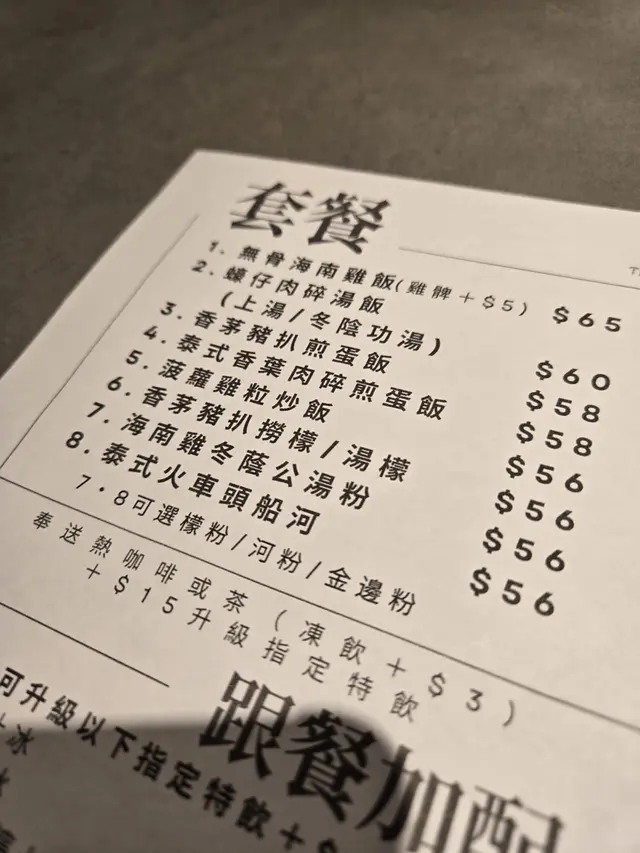 套餐
1. 無骨海南雞飯(雞髀+$5) $65
2. 蠔仔肉碎湯飯
(上湯/冬陰功湯) $60
3. 香茅豬扒煎蛋飯 $58
4. 泰式香葉肉碎煎蛋飯 $58
5. 菠蘿雞粒炒飯 $56
6. 香茅豬扒撈檬/湯檬 $56
7. 海南雞冬蔭公湯粉 $56
8. 泰式火車頭船河 $56
7·8可選檬粉/河粉/金邊粉
奉送熱咖啡或茶(凍飲+$3)
+$15升級指定特飲
跟餐加配
可升級以下指定特飲+$
冰